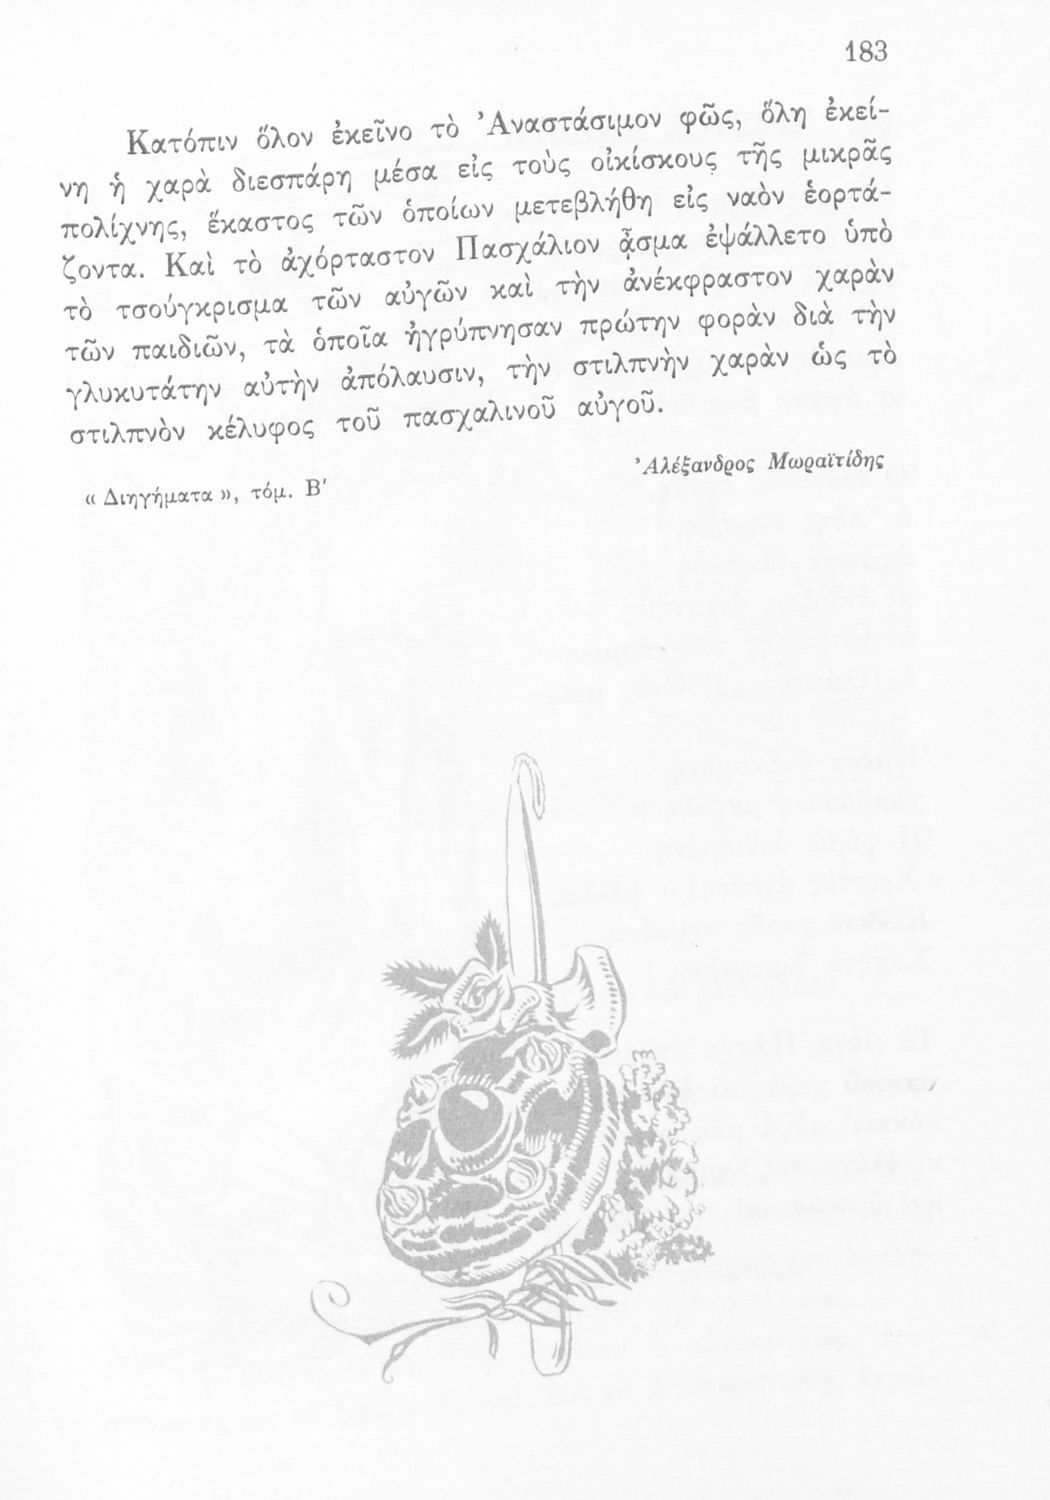 183
Κατόπιν ὅλον ἐκεῖνο τὸ ᾿Αναστάσιμον φῶς, ὅλη ἐκεί-
νη ἡ χαρὰ διεσπάρη μέσα εἰς τοὺς οἰκίσκους τῆς μικρᾶς
πολίχνης, ἕκαστος τῶν ὁποίων μετεβλήθη εἰς ναὸν ἑορτά-
ζοντα. Καὶ τὸ ἀχόρταστον Πασχάλιον ᾆσμα ἐψάλλετο ὑπὸ
τὸ τσούγκρισμα τῶν αὐγῶν καὶ τὴν ἀνέκφραστον χαρὰν
τῶν παιδιῶν, τὰ ὁποῖα ἠγρύπνησαν πρώτην φορὰν διὰ τὴν
γλυκυτάτην αὐτὴν ἀπόλαυσιν, τὴν στιλπνὴν χαρὰν ὡς τὸ
στιλπνὸν κέλυφος τοῦ πασχαλινοῦ αὐγοῦ.
᾿Αλέξανδρος Μωραϊτίδης
« Διηγήματα », τόμ. Β′